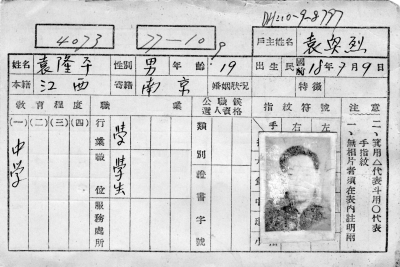 DH220-9-8797
4073
77-10
9
戶主姓名 袁興烈
姓名 袁隆平 性別 男 年齡 19 出生 民國18年7月9日
本籍 江西 寄籍 南京 婚姻狀況 特徵
教育程度 職業 公職候選人資格 指紋符號 注意
(一)(二)(三)(四)
中學
行業 學
職位 學生
服務處所
類別
證書字號
手 右 左
一、無相片者須在表內註明兩手指紋
二、實用△代表斗用○代表